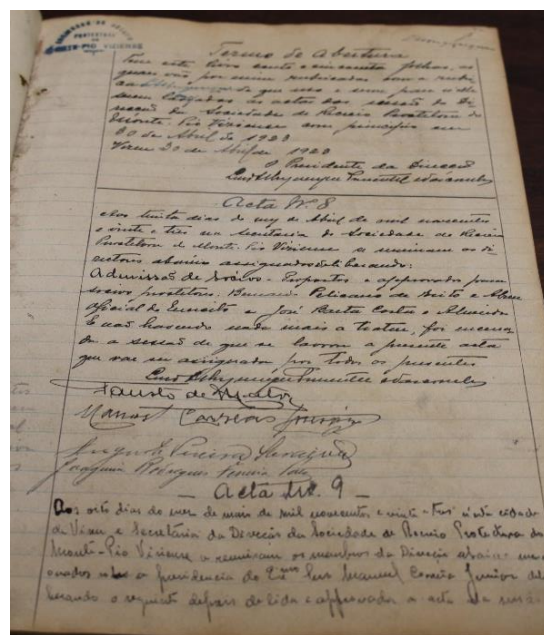 SOCIEDADE DE RECREIO
PROTETORA
DO
MONTE-PIO VIZIENSE
Termo de Abertura
Tem este livro cento e cincoenta folhas, as
quaes vão por mim rubricadas com a rubrica
de que uso e serve para n'elle
serem lançadas as actas das sessões da Direcção
da Sociedade de Recreio Protetora do
Monte-Pio Viziense com principio em
30 de Abril de 1923
Vizeu 30 de Abril de 1923
O Presidente da Direcção
Luiz Pimentel
Acta Nº 8
Aos trinta dias do mez de Abril de mil novecentos
e vinte e tres na Secretaria da Sociedade de Recreio
Protetora do Monte-Pio Viziense se reuniram os directores
abaixo assignados deliberando:
Admissão de Socios - Propostos e approvados para
socios protetores, Bernardo Pelicano de Brito e Abreu
oficial do Exercito e José Costa e Almeida
E não havendo nada mais a tratar, foi encerrada
a sessão de que se lavrou a presente acta
que vae ser assignada por todos os presentes
Luiz Pimentel
Fausto de
Manoel Correia Junior
Pereira
Joaquim Rodrigues Pereira
— Acta Nº. 9 —
Aos oito dias do mez de maio de mil novecentos e vinte e tres n'esta cidade
de Vizeu e Secretaria da Direcção da Sociedade de Recreio Protectora do
Monte-Pio Viziense se reuniram os membros da Direcção abaixo
sob a presidencia do Exmo Snr Manuel Correia Junior deliberando
o seguinte depois de lida e approvada a acta da